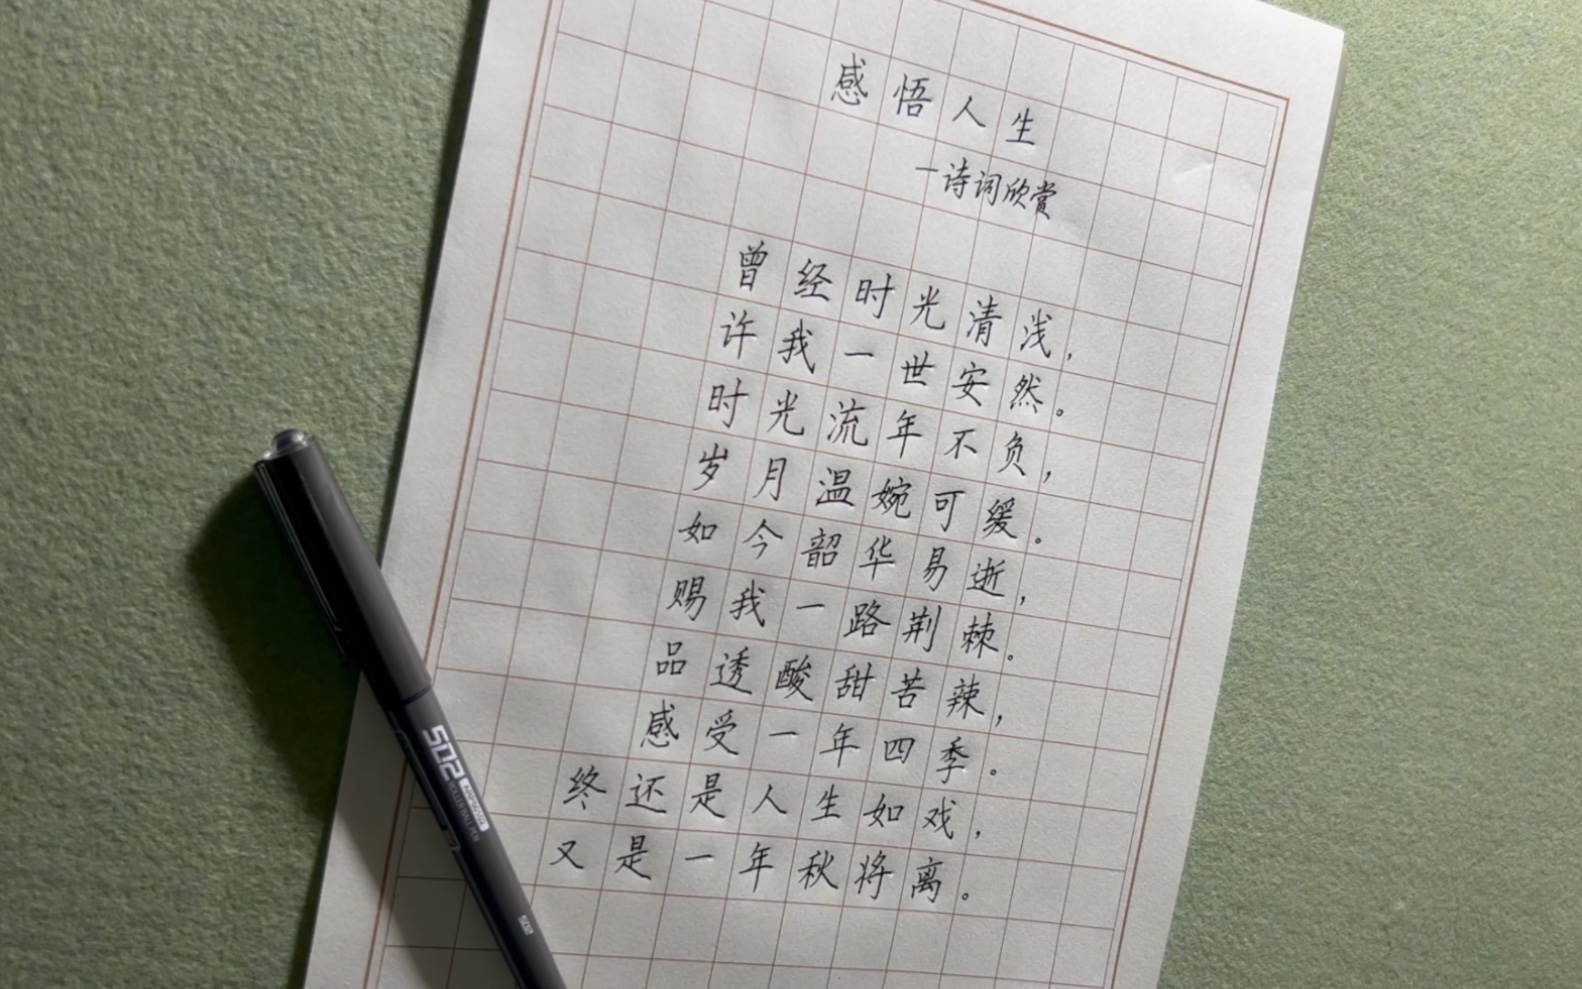 感悟人生
—诗词欣赏
曾经时光清浅，
许我一世安然。
时光流年不负，
岁月温婉可缓。
如今韶华易逝，
赐我一路荆棘。
品透酸甜苦辣，
感受一年四季。
终还是人生如戏，
又是一年秋将离。
502
502